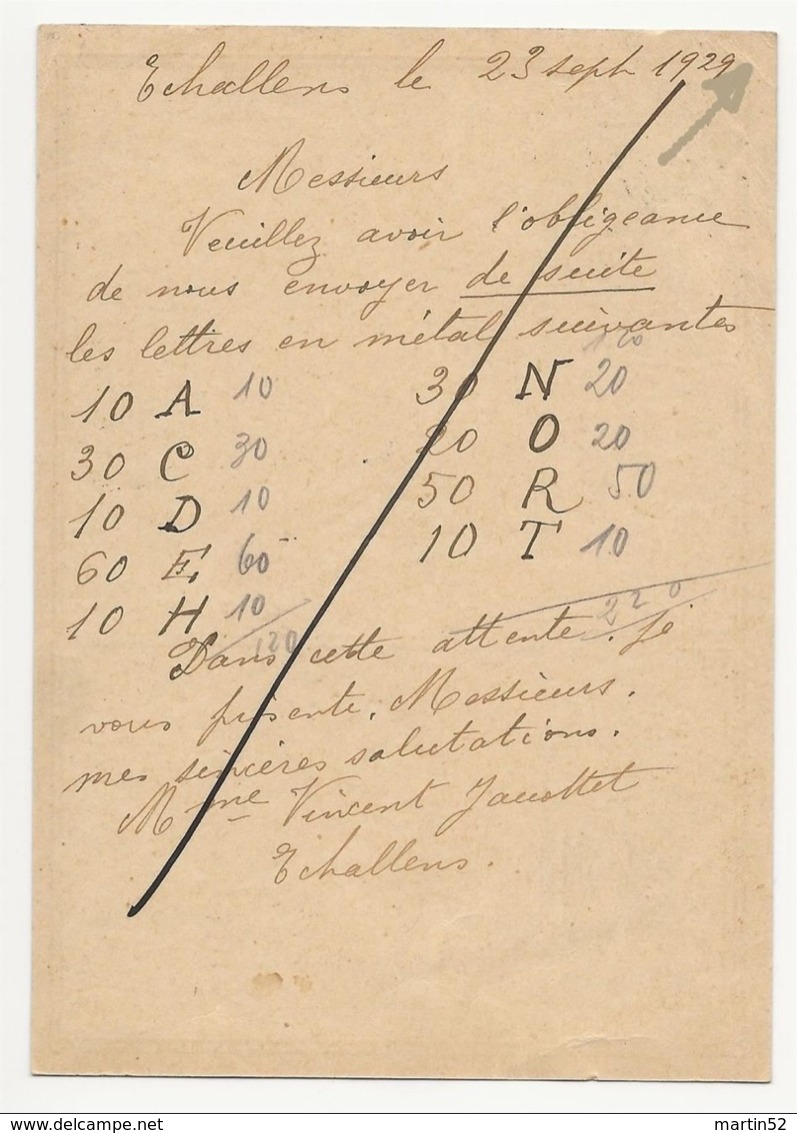 Echallens le 23 sept 1929
Messieurs
Veuillez avoir l'obligeance
de nous envoyer de suite
les lettres en métal suivantes
120
10 A 10 30 N 20
30 C 30 20 O 20
10 D 10 50 R 50
60 E 60 10 T 10
10 H 10
120 220
Dans cette attente. je
vous présente, Messieurs.
mes sincères salutations.
Mme Vincent Jaccottet
Echallens.
delcampe.net
martin52